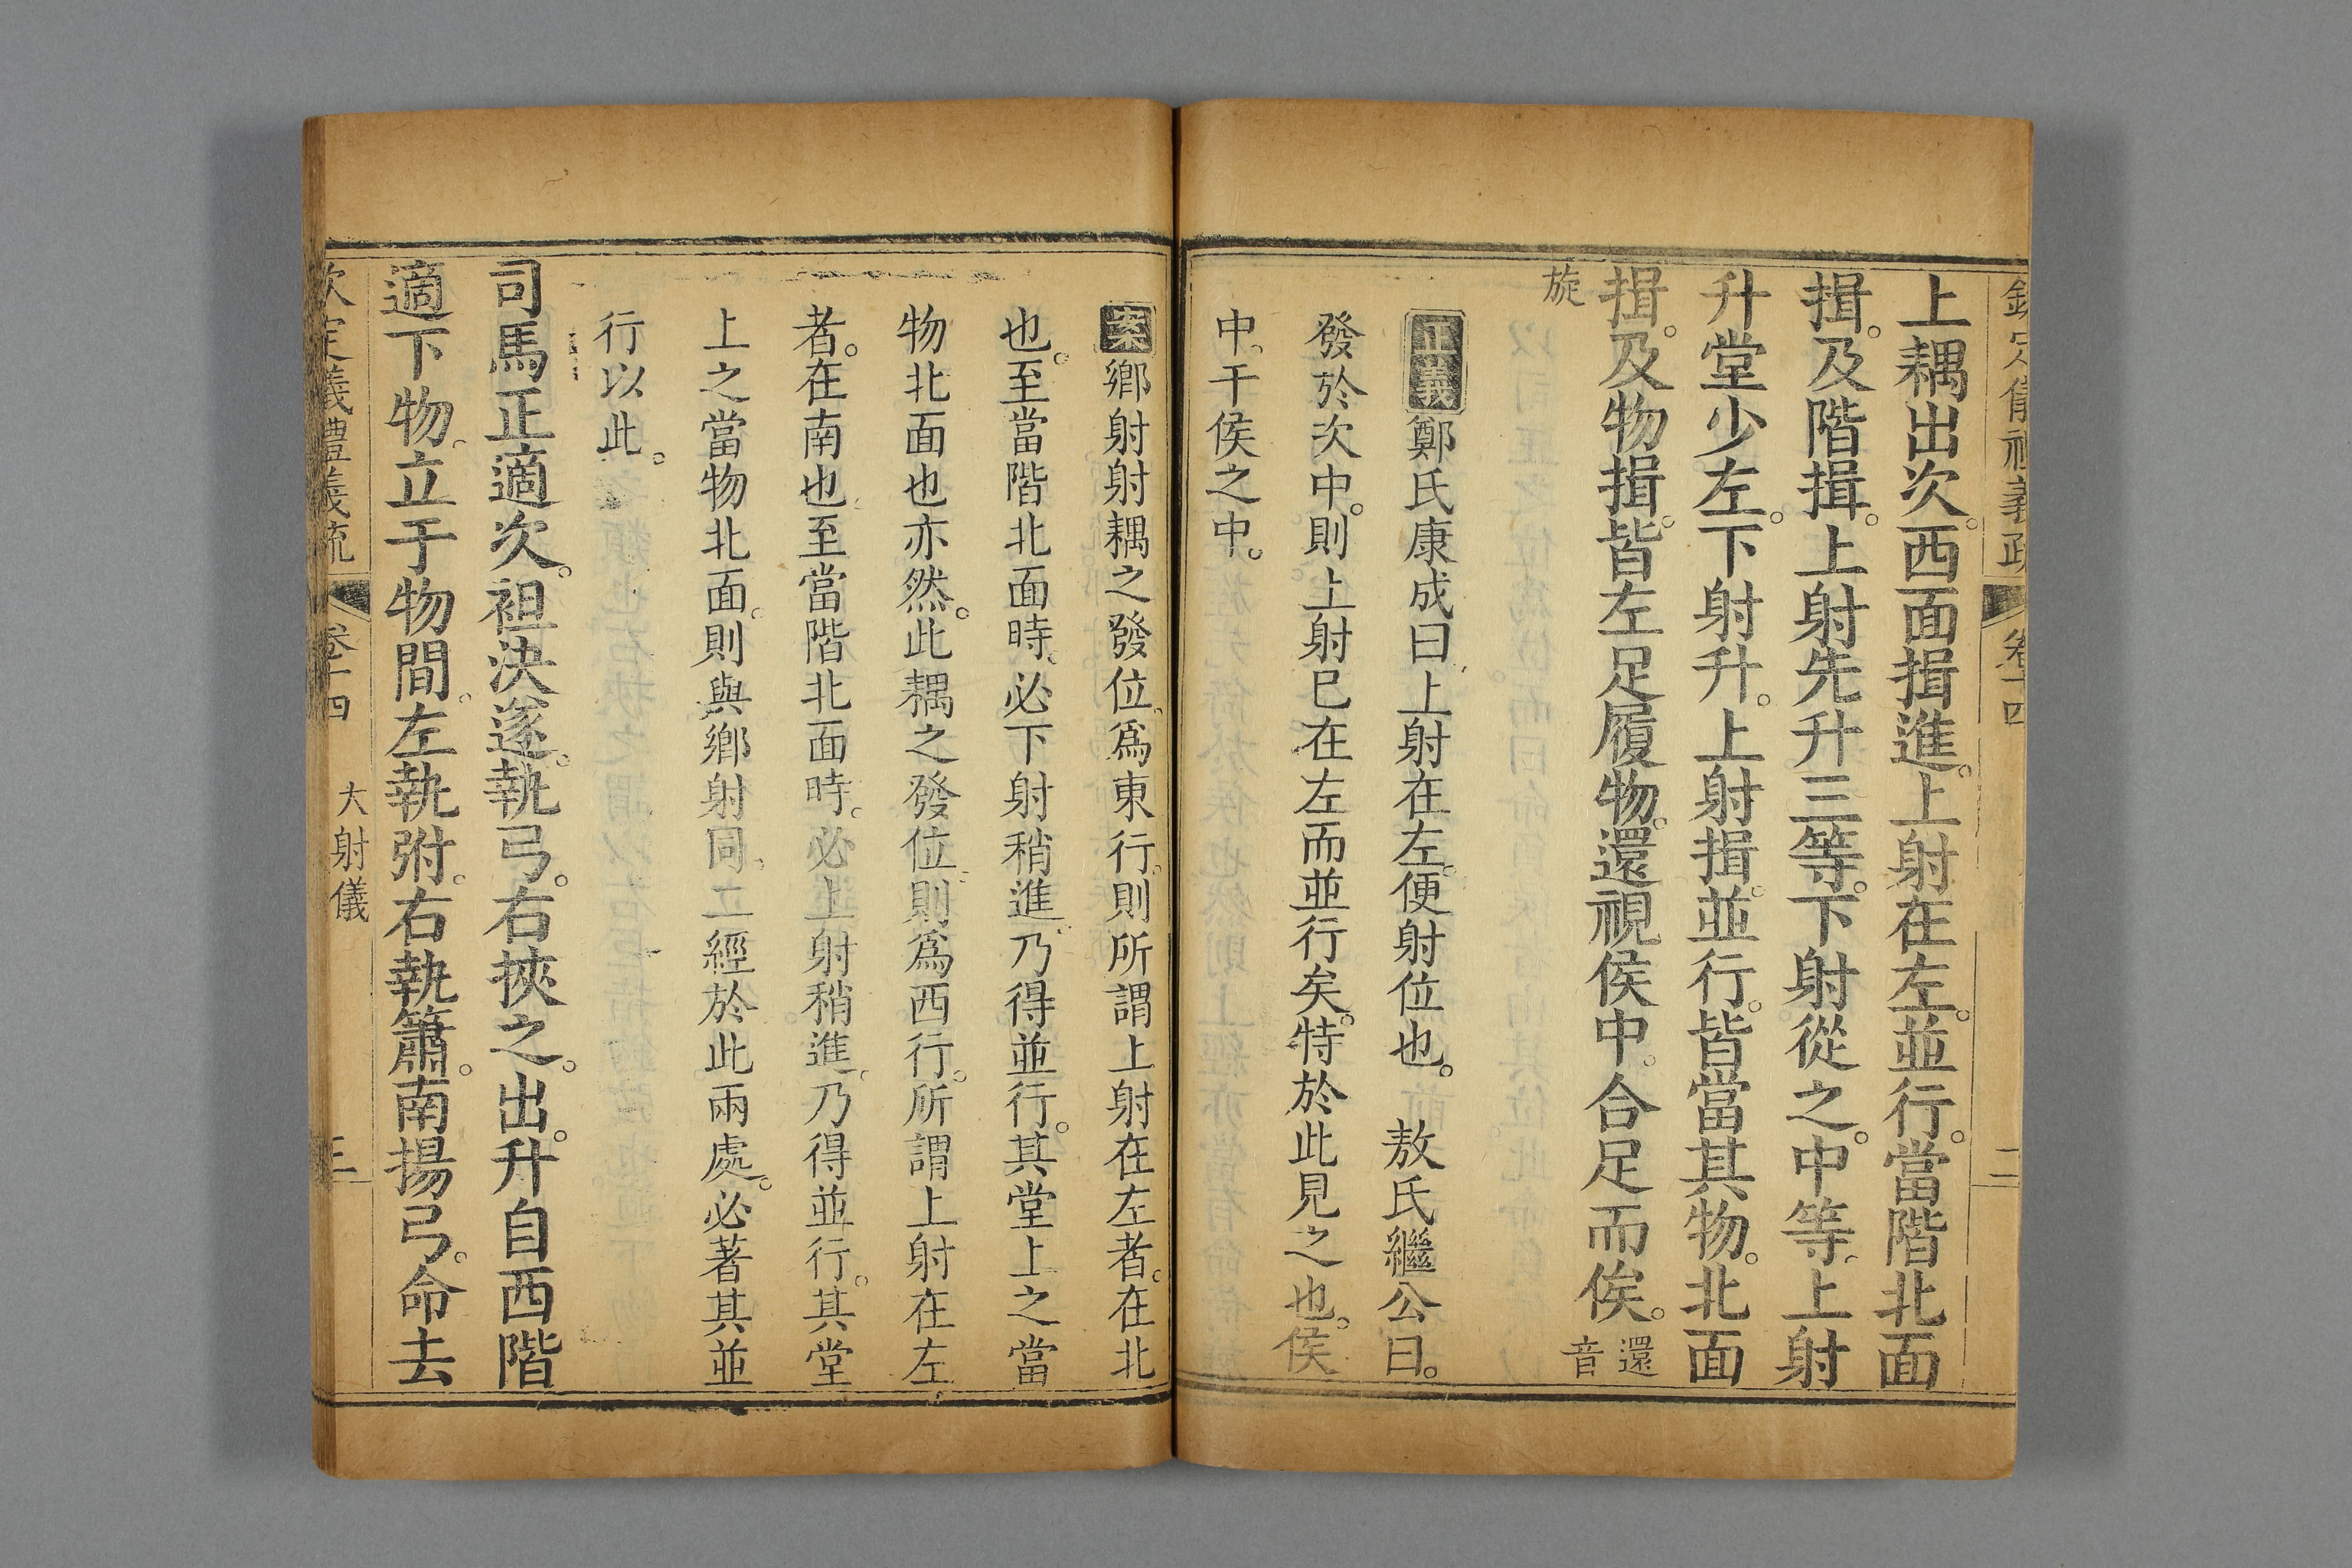 上耦出次。西面揖進。上射在左。並行。當階北面
揖。及階揖。上射先升三等。下射從之。中等。上射
升堂少左。下射升。上射揖並行。皆當其物。北面
揖。及物揖。皆左足履物。還視侯中。合足而俟。還音
旋
正義鄭氏康成曰、上射在左。便射位也。 敖氏繼公曰。
發於次中。則上射已在左而並行矣。特於此見之也。侯
中。干侯之中。
案鄉射射耦之發位、爲東行。則所謂上射在左者。在北
也。至當階北面時。必下射稍進、乃得並行。其堂上之當
物北面也亦然。此耦之發位、則爲西行。所謂上射在左
者。在南也至當階北面時。必上射稍進、乃得並行。其堂
上之當物北面。則與鄉射同、二經於此兩處。必著其並
行以此。
司馬正適次。袒決遂。執弓。右挾之。出。升自西階
適下物、立于物間。左執弣。右執簫。南揚弓。命去
欽定儀禮義疏 卷十四 大射儀 三